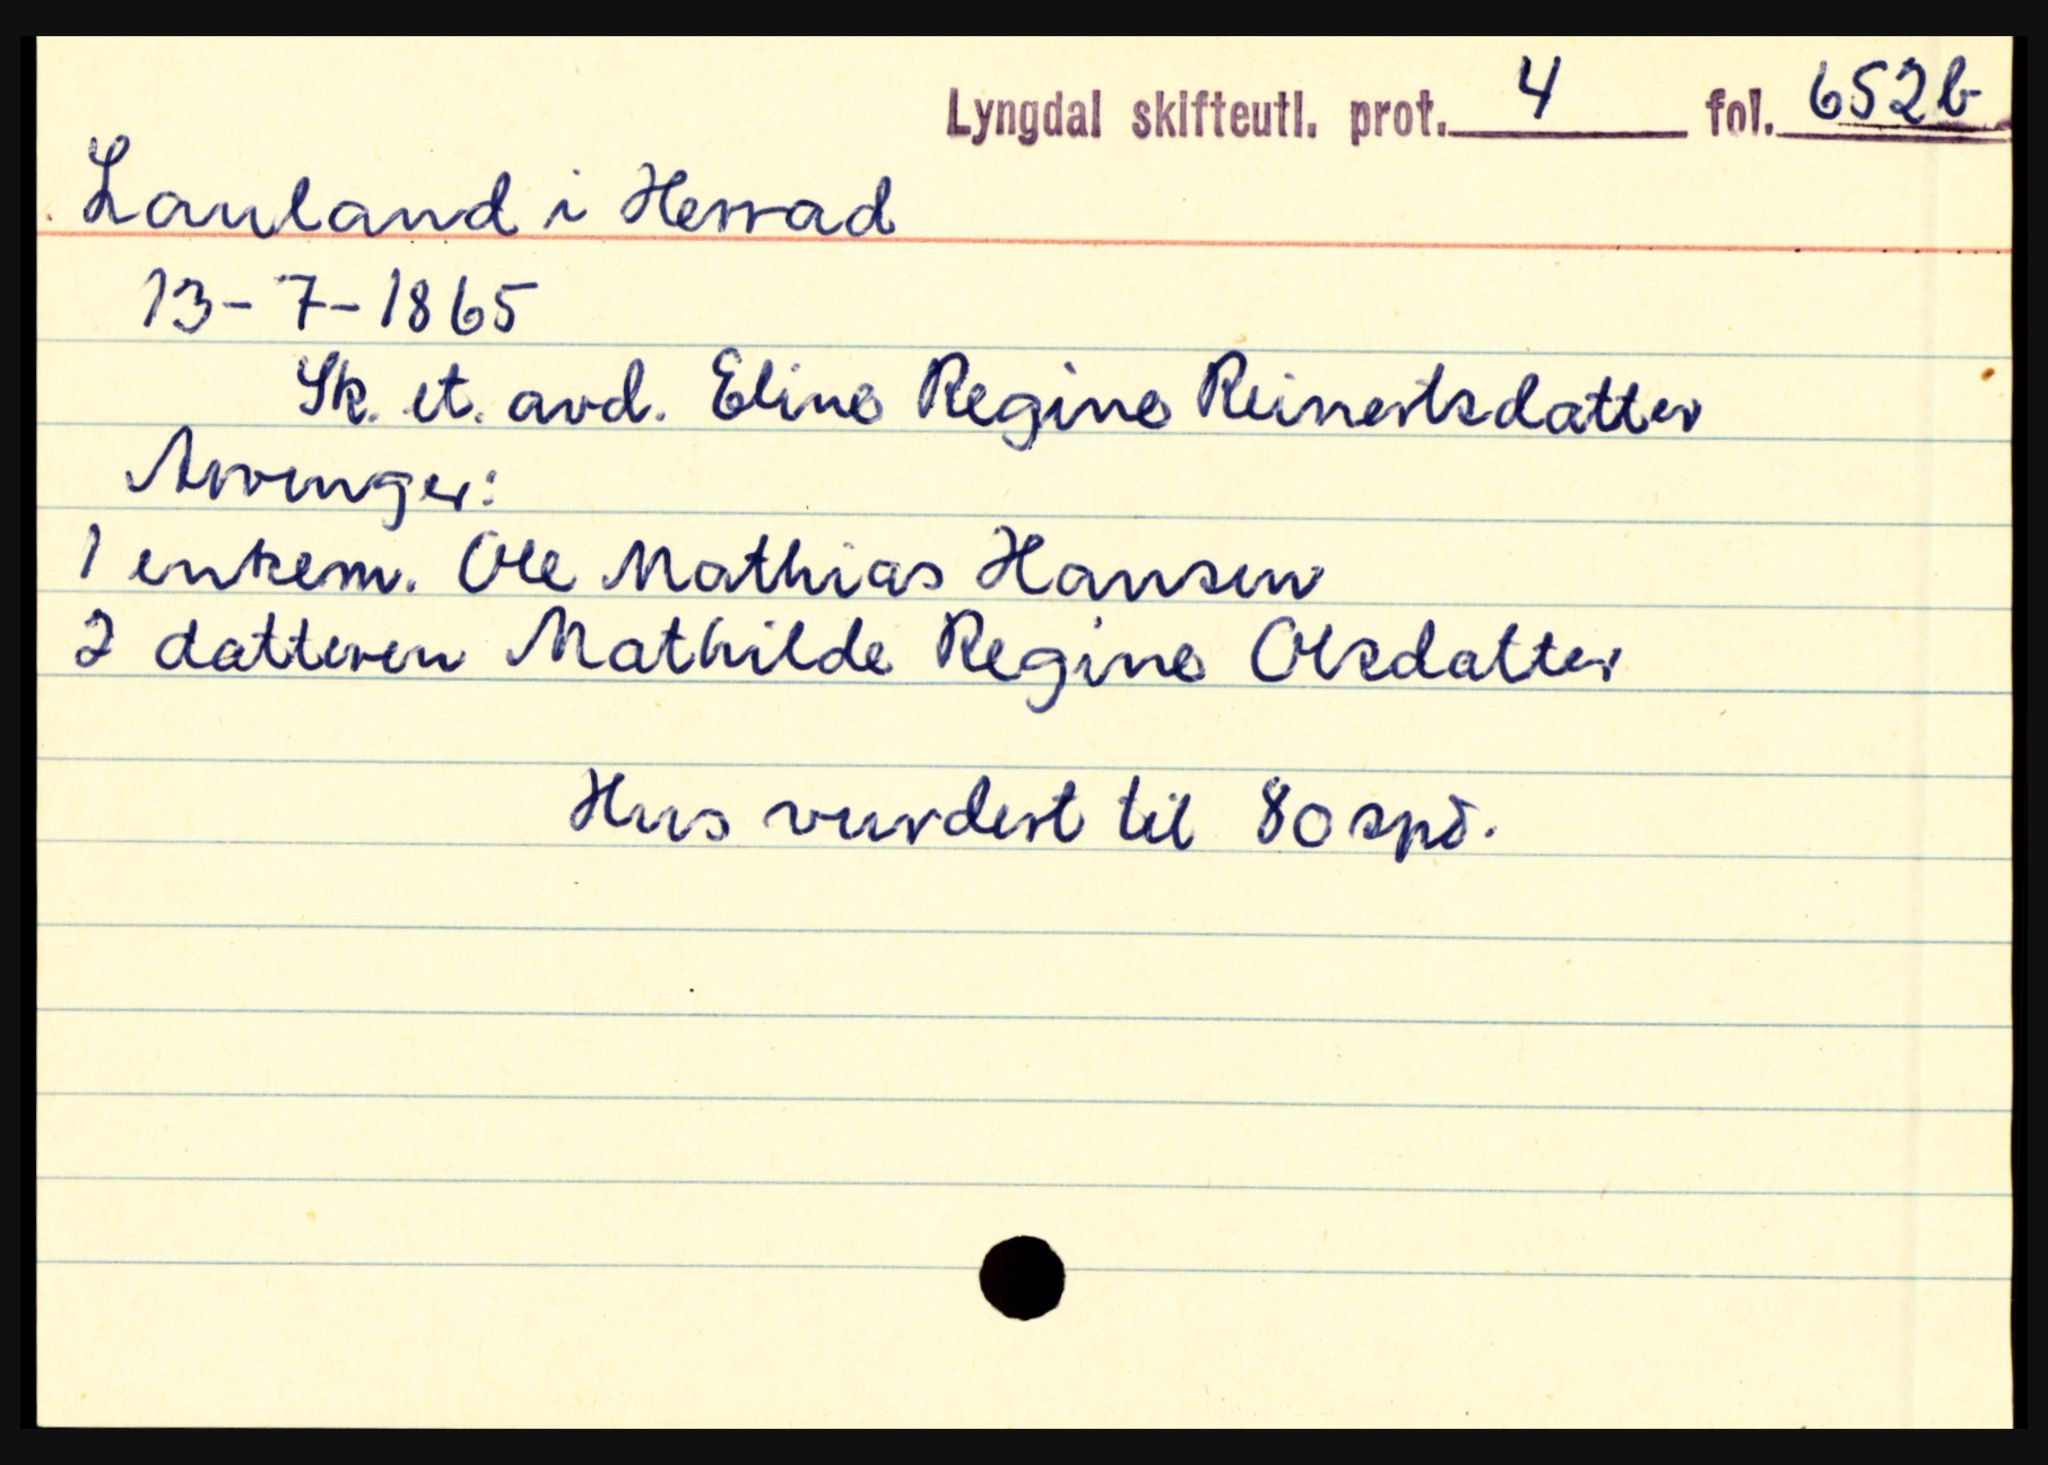 Lyngdal skifteutl. prot. 4 fol. 652b
Lauland i Herrad
13-7-1865
Sk. et. avd. Eline Regine Reinertsdatter
Arvinger:
1 enkem. Ole Mathias Hansen
2 datteren Mathilde Regine Olsdatter
Hus vurdert til 80 spd.